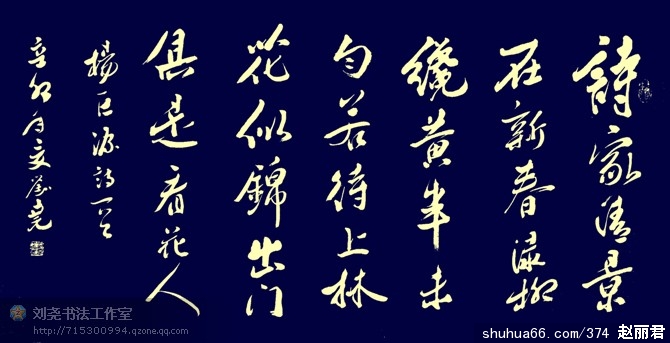 詩家清景
在新春綠柳
纔黄半未
匀若待上林
花似錦出门
俱是看花人
楊巨源詩一首
辛卯年夏劉堯
刘尧书法工作室
http://715300994.qzone.qq.com
shuhua66.com/374 赵丽君